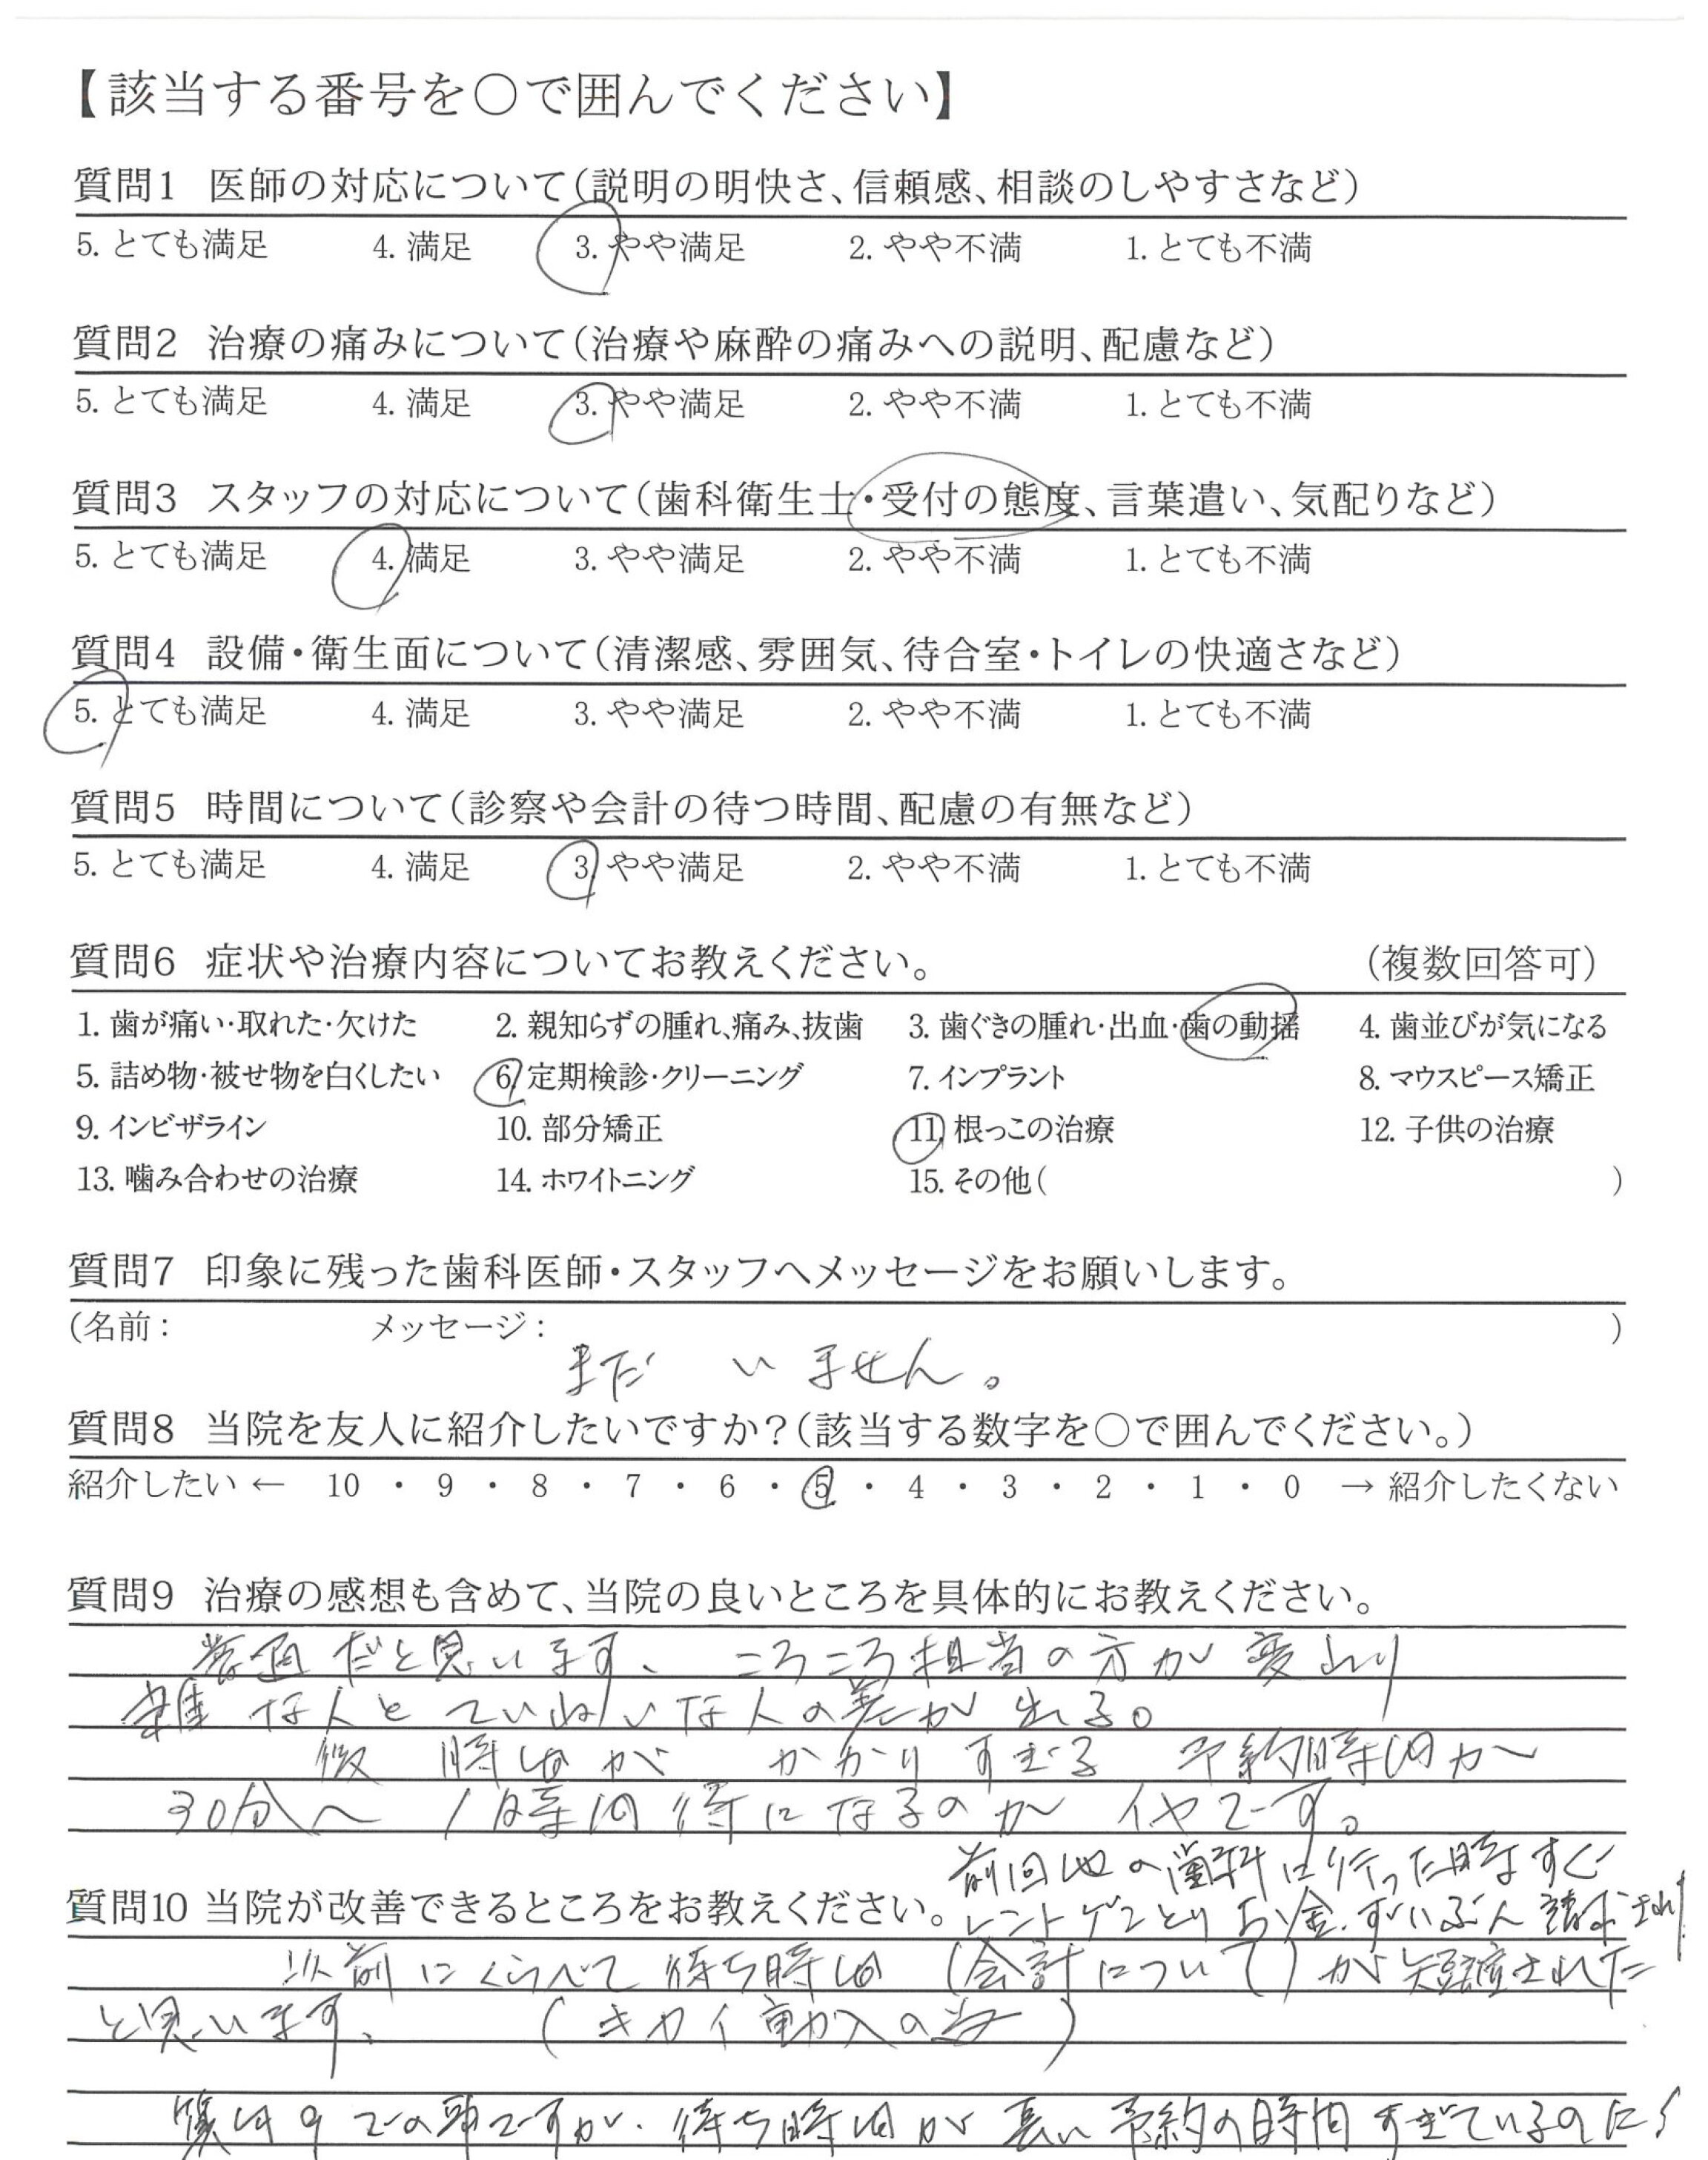 【該当する番号を○で囲んでください】
質問1 医師の対応について(説明の明快さ、信頼感、相談のしやすさなど)
5. とても満足 4. 満足 3. やや満足 2. やや不満 1. とても不満
質問2 治療の痛みについて(治療や麻酔の痛みへの説明、配慮など)
5. とても満足 4. 満足 3. やや満足 2. やや不満 1. とても不満
質問3 スタッフの対応について(歯科衛生士・受付の態度、言葉遣い、気配りなど)
5. とても満足 4. 満足 3. やや満足 2. やや不満 1. とても不満
質問4 設備・衛生面について(清潔感、雰囲気、待合室・トイレの快適さなど)
5. とても満足 4. 満足 3. やや満足 2. やや不満 1. とても不満
質問5 時間について(診察や会計の待つ時間、配慮の有無など)
5. とても満足 4. 満足 3. やや満足 2. やや不満 1. とても不満
質問6 症状や治療内容についてお教えください。 (複数回答可)
1. 歯が痛い・取れた・欠けた 2. 親知らずの腫れ、痛み、抜歯 3. 歯ぐきの腫れ・出血・歯の動揺 4. 歯並びが気になる
5. 詰め物・被せ物を白くしたい 6. 定期検診・クリーニング 7. インプラント 8. マウスピース矯正
9. インビザライン 10. 部分矯正 11. 根っこの治療 12. 子供の治療
13. 噛み合わせの治療 14. ホワイトニング 15. その他( )
質問7 印象に残った歯科医師・スタッフへメッセージをお願いします。
(名前: メッセージ: )
まだ いません。
質問8 当院を友人に紹介したいですか?(該当する数字を○で囲んでください。)
紹介したい ← 10 ・ 9 ・ 8 ・ 7 ・ 6 ・ 5 ・ 4 ・ 3 ・ 2 ・ 1 ・ 0 → 紹介したくない
質問9 治療の感想も含めて、当院の良いところを具体的にお教えください。
普通だと思います、ころころ担当の方が変わり
雑な人とていねいな人の差が出る。
後 時間が かかりすぎる 予約時間が
30分〜1時間待になるのが イヤです。
前回他の歯科に行った時すぐ
質問10 当院が改善できるところをお教えください。
レントゲンとりお金ずいぶん請求され
以前にくらべて待ち時間(会計について)が短縮された
と思います、(キカイ導入の為)
待ち時間が長い予約の時間すぎているのに